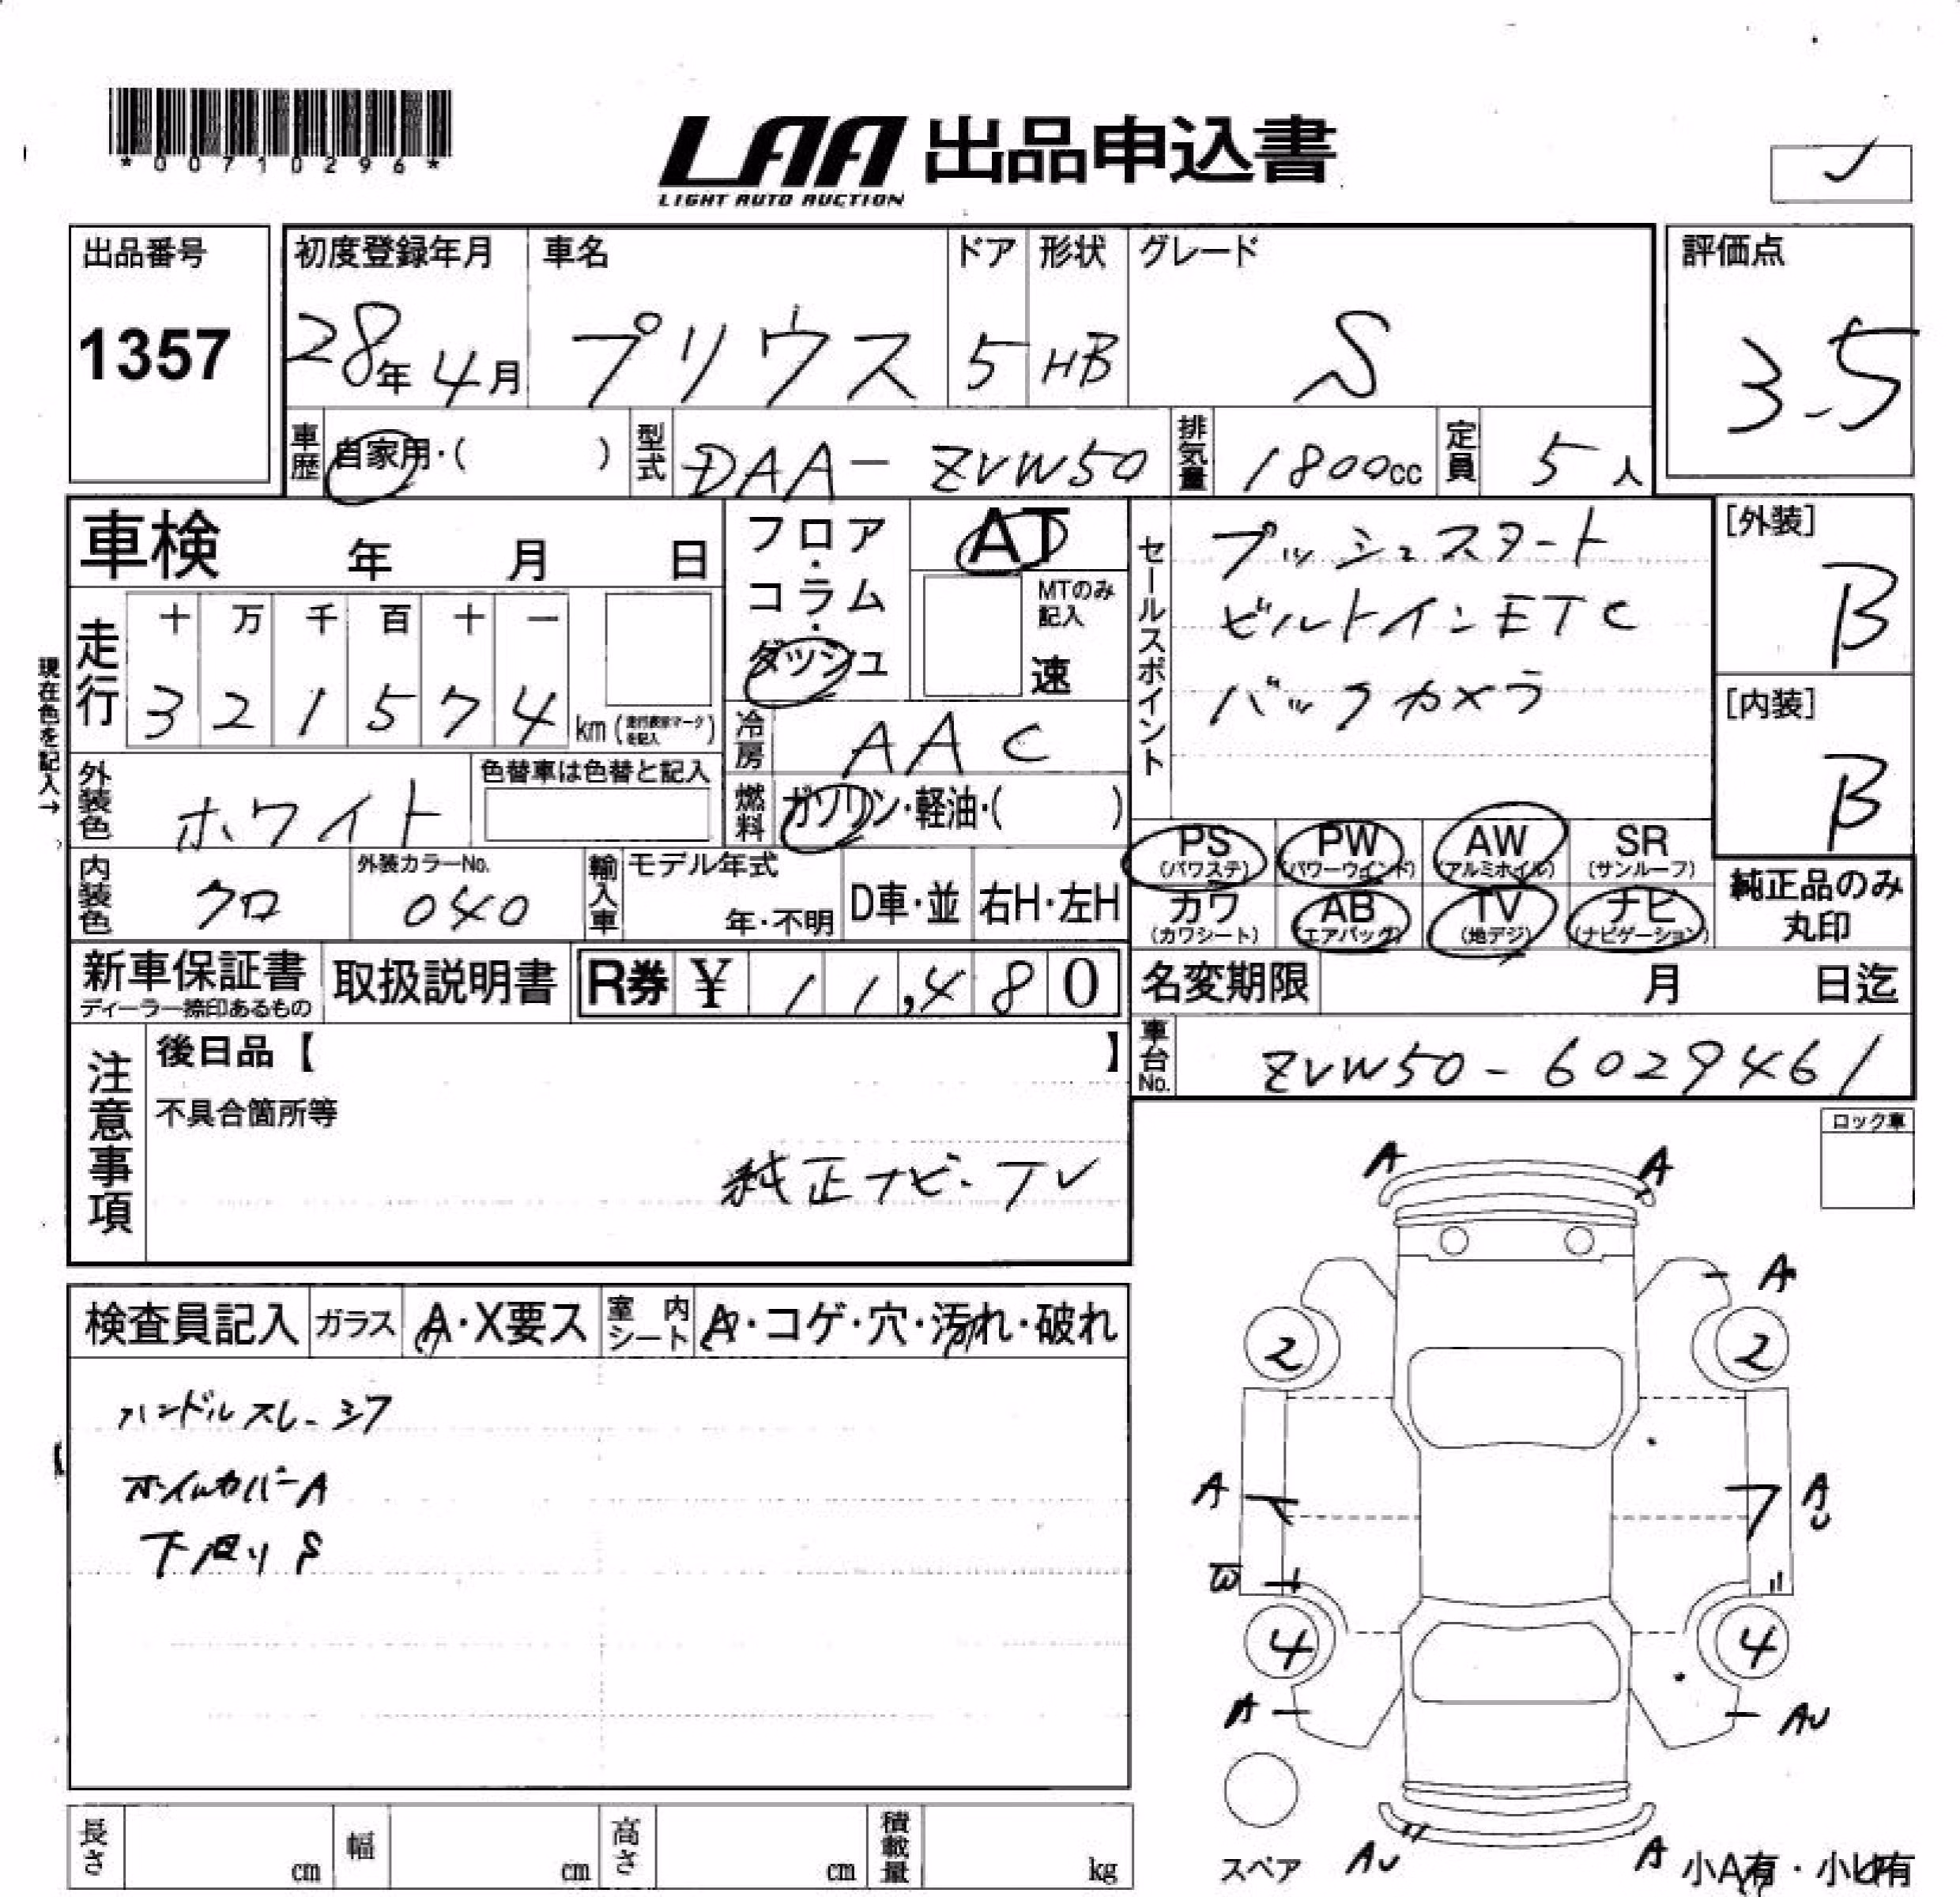 *00710296*
LAA 出品申込書
LIGHT AUTO AUCTION
出品番号
1357
初度登録年月
28年 4月
車名
プリウス
ドア
5
形状
HB
グレード
S
評価点
3.5
車歴
自家用・( )
型式
DAA-ZVW50
排気量
1800cc
定員
5人
車検 年 月 日
フロア・コラム・ダッシュ
AT
MTのみ記入
速
セールスポイント
プッシュスタート
ビルトインETC
バックカメラ
[外装]
B
[内装]
B
現在色を記入→
走行
十 万 千 百 十 一
3 2 1 5 7 4 km
冷房
AAC
外装色
ホワイト
色替車は色替と記入
燃料
ガソリン・軽油・( )
PS (パワステ)
PW (パワーウインド)
AW (アルミホイル)
SR (サンルーフ)
カワ (カワシート)
AB (エアバッグ)
TV (地デジ)
ナビ (ナビゲーション)
純正品のみ
丸印
内装色
クロ
外装カラーNo.
040
輸入車
モデル年式
年・不明
D車・並
右H・左H
新車保証書
ディーラー捺印あるもの
取扱説明書
R券 ¥ 11,480
名変期限 月 日迄
車台No.
ZVW50-6029461
注意事項
後日品【 】
不具合箇所等
純正ナビ・TV
ロック車
検査員記入
ガラス
A・X要ス
室内シート
A・コゲ・穴・汚れ・破れ
ハンドルスレ・シワ
ホイルカバーA
下廻りS
A A
A
2 2
A AU
W
4 4
A AU
スペア
AU A
小A有・小U有
長さ cm
幅 cm
高さ cm
積載量 kg